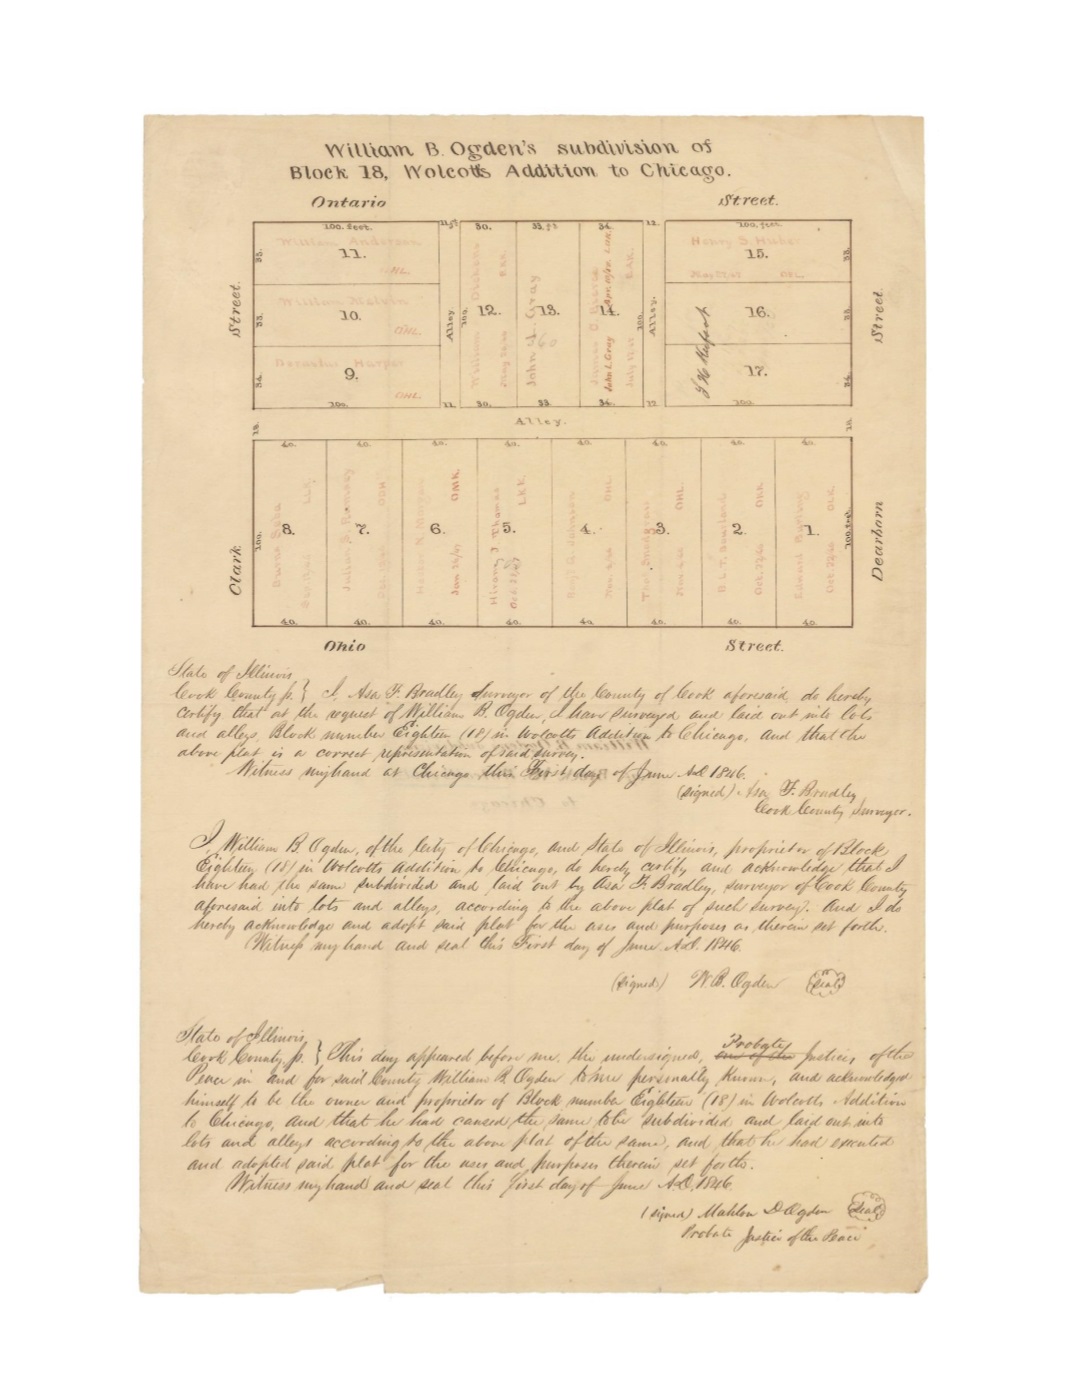 William B. Ogden's subdivision of
Block 18, Wolcott's Addition to Chicago.
Ontario Street.
100. feet. 30. 33. 34. 12. 100. feet.
William Anderson
11.
OHL.
William Melvin
10.
OHL.
Harper
9.
OHL.
Street.
Alley.
100.
William
12.
John L. Gray
13.
60
14.
John L. Gray
100.
Alley.
Henry S. Huber
15.
16.
17.
Street.
33. 33. 34.
33. 33. 34.
100. 12. 30. 33. 34. 12. 100.
Alley.
18. 18.
40. 40. 40. 40. 40. 40. 40. 40.
Clark
100.
8.
7.
6.
OMK.
Jan 26/67
5.
Hiram J. Thomas
LKK.
4.
Johnson
OHL.
3.
OHL.
2.
Oct. 22/60
1.
Edward
Oct. 22/60
100 feet.
Dearborn
40. 40. 40. 40. 40. 40. 40. 40.
Ohio Street.
State of Illinois,
Cook County ss. } I, Asa F. Bradley Surveyor of the County of Cook aforesaid, do hereby
certify that at the request of William B. Ogden, I have surveyed and laid out into lots
and alleys, Block number Eighteen (18) in Wolcotts Addition to Chicago, and that the
above plat is a correct representation of said survey.
Witness my hand at Chicago this First day of June A.D. 1846.
(signed) Asa F. Bradley
Cook County Surveyor.
I, William B. Ogden, of the City of Chicago, and State of Illinois, proprietor of Block
Eighteen (18) in Wolcotts Addition to Chicago, do hereby certify and acknowledge that I
have had the same subdivided and laid out by Asa F. Bradley, surveyor of Cook County
aforesaid into lots and alleys, according to the above plat of such survey. And I do
hereby acknowledge and adopt said plat for the uses and purposes as therein set forth.
Witness my hand and seal this First day of June A.D. 1846.
(signed) W. B. Ogden Seal
State of Illinois,
Probate
Cook County ss. } This day appeared before me, the undersigned, one of the Justices of the
Peace in and for said County William B. Ogden to me personally known, and acknowledged
himself to be the owner and proprietor of Block number Eighteen (18) in Wolcotts Addition
to Chicago, and that he had caused the same to be subdivided and laid out into
lots and alleys according to the above plat of the same, and that he had executed
and adopted said plat for the uses and purposes therein set forth.
Witness my hand and seal this first day of June A.D. 1846.
(signed) Mahlon D. Ogden Seal
Probate Justice of the Peace